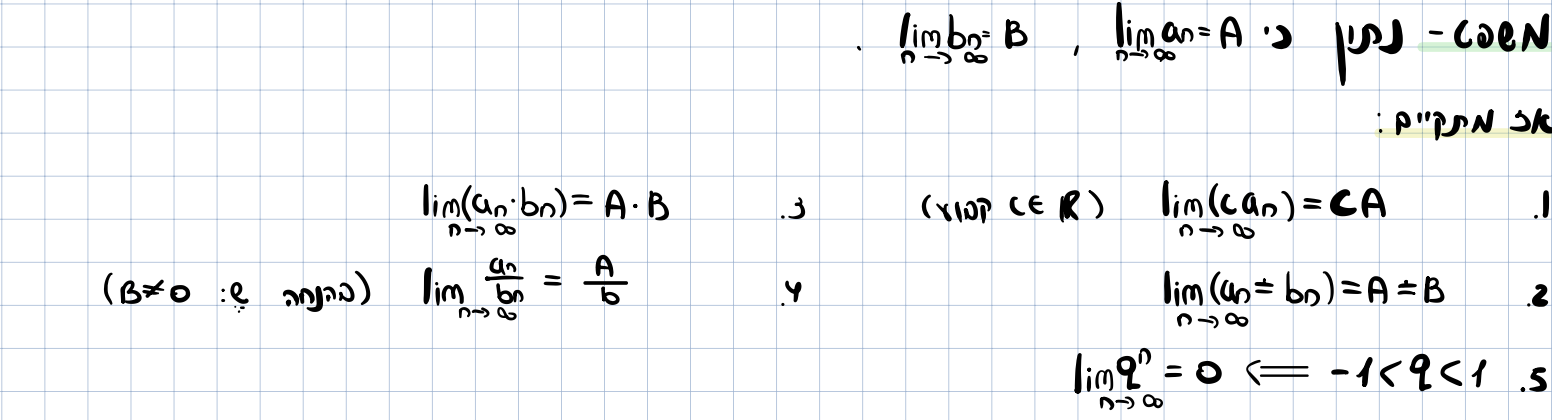 משפט - נתון כי lim_{n→∞} an = A , lim_{n→∞} bn = B .
אז מתקיים:
1. lim_{n→∞} (c an) = CA (קבוע c ∈ R)
3. lim_{n→∞} (an · bn) = A · B
2. lim_{n→∞} (an ± bn) = A ± B
4. lim_{n→∞} an/bn = A/b (בהנחה ש: B ≠ 0)
5. -1 < q < 1 ⟸ lim_{n→∞} q^n = 0